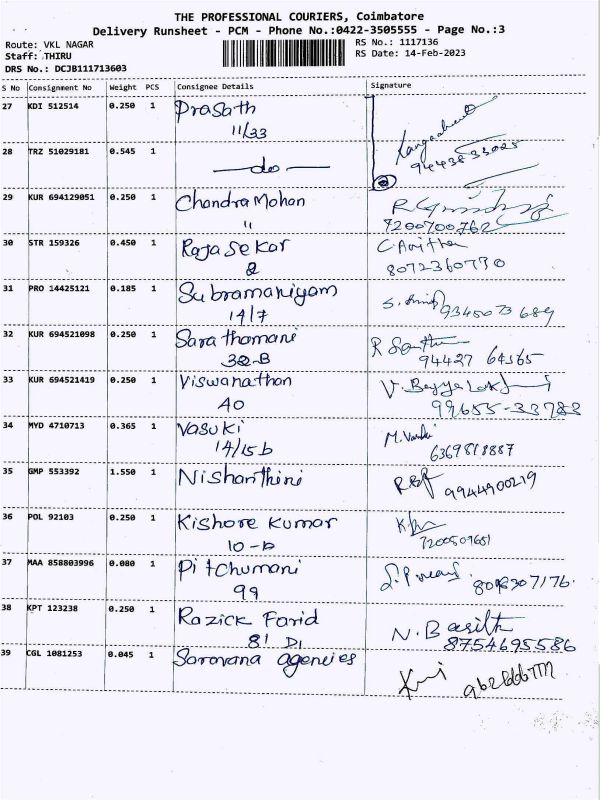 THE PROFESSIONAL COURIERS, Coimbatore
Delivery Runsheet - PCM - Phone No.:0422-3505555 - Page No.:3
Route: VKL NAGAR
RS No.: 1117136
Staff: THIRU
RS Date: 14-Feb-2023
DRS No.: DCJB111713603
S No Consignment No Weight PCS Consignee Details Signature
27 KDI 512514 0.250 1 Prasath
11/33
28 TRZ 51029181 0.545 1 —do—
29 KUR 694129051 0.250 1 Chandra Mohan
11
7200700762
30 STR 159326 0.450 1 Raja Sekar C. Anitha
2 8072360770
31 PRO 14425121 0.185 1 Subramaniyam
14/7 9345073689
32 KUR 694521098 0.250 1 Sarathamani
32-B 94427 64565
33 KUR 694521419 0.250 1 Viswanathan
40 99655-33788
34 MYD 4710713 0.365 1 Vasuki
14/15b 6369818887
35 GMP 553392 1.550 1 Nishanthini
9944900219
36 POL 92103 0.250 1 Kishore Kumar
10-b 7200507651
37 MAA 858803996 0.080 1 Pitchumani
99
38 KPT 123238 0.250 1 Razick Farid N. Basith
81 D1 8754695586
39 CGL 1081253 0.045 1 Saravana agencies